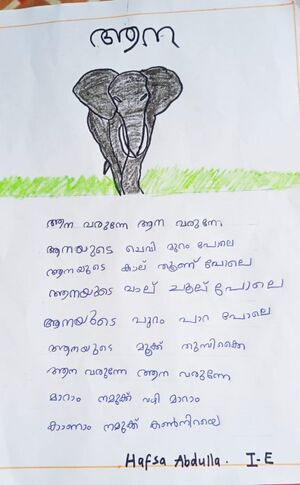 ആന
ആന വരുന്നേ ആന വരുന്നേ
ആനയുടെ ചെവി മുറം പോലെ
ആനയുടെ കാല് തൂണ് പോലെ
ആനയുടെ വാല് ചൂല് പോലെ
ആനയുടെ പുറം പാറ പോലെ
ആനയുടെ മൂക്ക് തുമ്പിക്കൈ
ആന വരുന്നേ ആന വരുന്നേ
മാറാം നമുക്ക് വഴി മാറാം
കാണാം നമുക്ക് കൺനിറയെ
Hafsa Abdulla. I-E